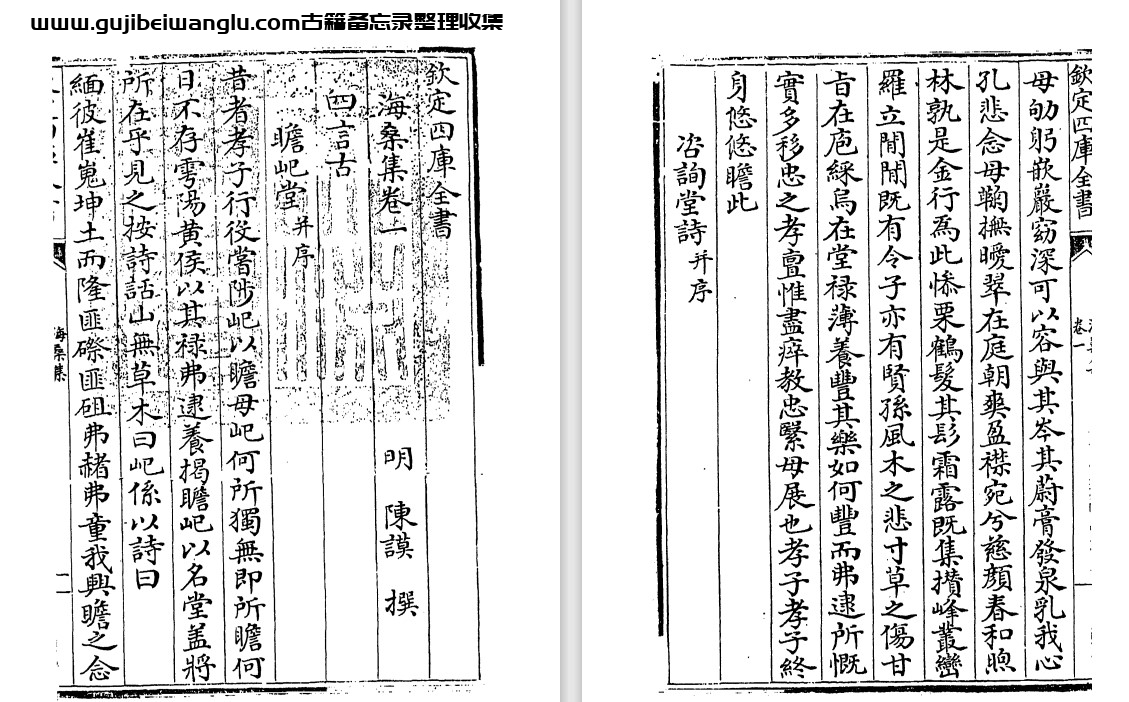 www.gujibeiwanglu.com古籍备忘录整理收集
欽定四庫全書
海桑集卷一
明 陳謨 撰
四言古
瞻屺堂 并序
昔者孝子行役嘗陟屺以瞻母屺何所獨無即所瞻何
日不存雩陽黄侯以其禄弗逮養揭瞻屺以名堂盖將
所在乎見之按詩話山無草木曰屺係以詩曰
緬彼崔嵬坤土而隆匪磜匪砠弗赭弗童我興瞻之念
海桑集
欽定四庫全書
卷一
母劬躬嵌巖窈深可以容與其岑其蔚膏發泉乳我心
孔悲念母鞠撫曖翠在庭朝爽盈襟宛兮慈顔春和煦
林孰是金行為此慘栗鶴髮其髟霜露既集攅峰叢巒
羅立閒閒既有令子亦有賢孫風木之悲寸草之傷甘
旨在庖綵烏在堂禄薄養豐其樂如何豐而弗逮所慨
實多移忠之孝亶惟盡瘁教忠繄母展也孝子孝子終
身悠悠瞻此
咨詢堂詩 并序